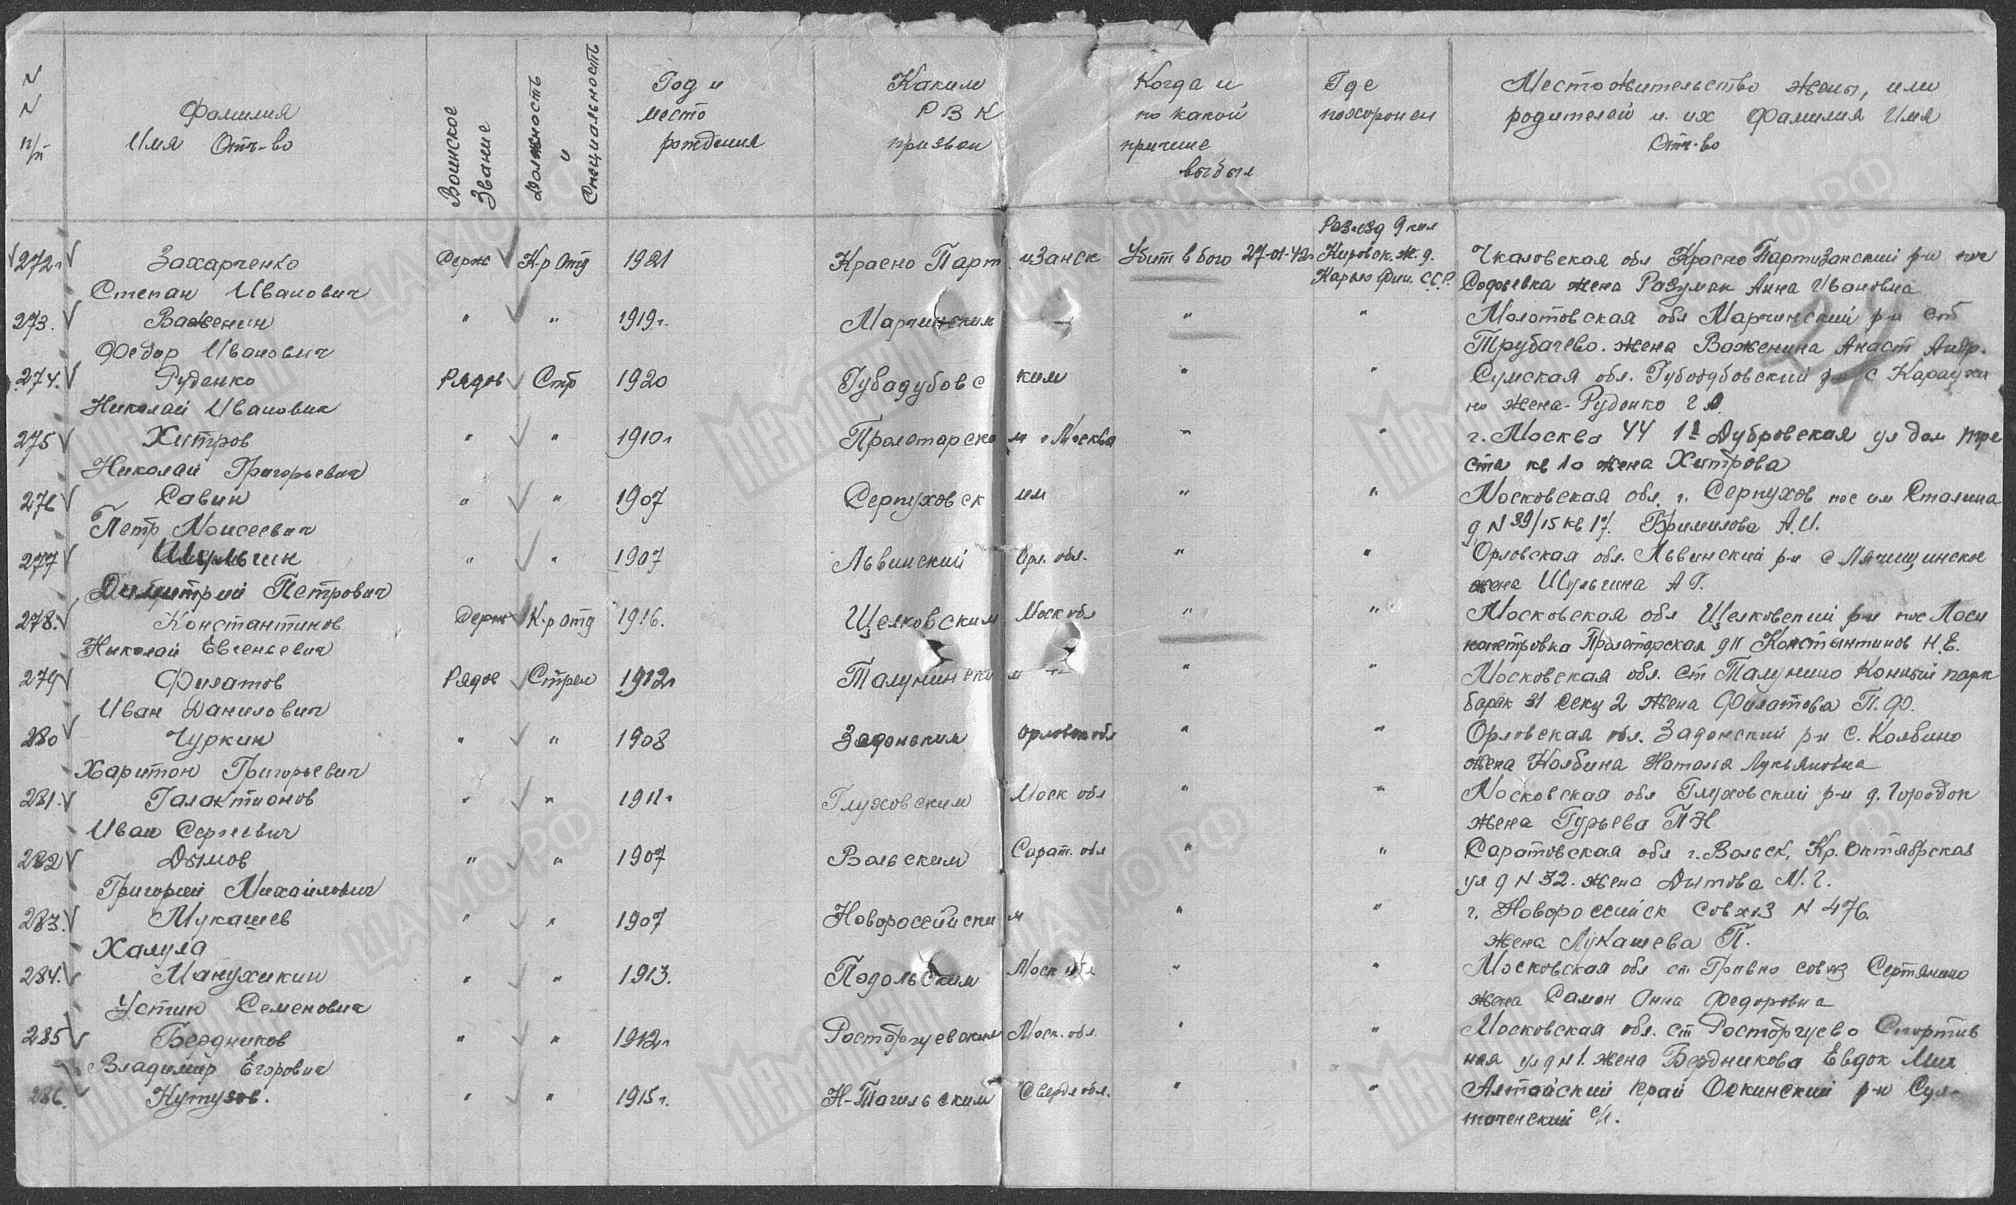 N
N
п/п
Фамилия
Имя Отч-во
Воинское
Звание
Должность
и
Специальность
Год и
место
рождения
Каким
РВК
призван
Когда и
по какой
причине
выбыл
Где
похоронен
Место жительство жены, или
родителей и их Фамилия Имя
Отч-во
Разъезд 9 км
272. Захарченко Серж Кр Отд 1921 Красно Партизанск Убит в бою 27-01-42г Кировск. ж.д. Чкаловская обл Красно Партизанский р-н пос
Степан Иванович Карело Фин. ССР. жена Разумак Анна Ивановна
273. Важенин " " 1919г. " " Молотовская обл р-н
Федор Иванович Трубачево. жена Важенина Анаст Андр.
274. Руденко Рядов Стр 1920 Губадубовским " " Сумская обл. р-н с
Николай Иванович жена Руденко
275 Хитров " " 1910г Пролетарским г Москва " " г. Москва 44 1я Дубровская ул дом тре
Николай Григорьевич ста кв 10 жена Хитрова
276 Савин " " 1907 Серпуховским " " Московская обл. г. Серпухов пос им Сталина
Петр Моисеевич д N 39/15 кв 17. А.И.
277 Шульгин " " 1907 Львинский Орл. обл. " " Орловская обл. Львинский р-н с
Димитрий Петрович жена Шульгина А Г.
278. Константинов Серж К-р отд 1916. Щелковским Моск обл " " Московская обл Щелковский р-н пос Лоси
Николай Евгеньевич нопетровка Пролетарская д 11 Константинов Н.Е.
279 Филатов Рядов Стрел 1912г Талунинским " " Московская обл. ст Талунино Конный парк
Иван Данилович барак 31 секц 2 жена Филатова П.Ф.
280 Чуркин " " 1908 Задонским Орловск обл " " Орловская обл. Задонский р-н с. Колбино
Харитон Григорьевич жена Колбина Наталья Лукьяновна
281. Галактионов " " 1911г Глуховским Моск обл " " Московская обл Глуховский р-н д. Городок
Иван Сергеевич жена Гурьева П Н
282 Дымов " " 1907 Вольским Сарат. обл " " Саратовская обл г. Вольск, Кр. Октябрская
Григорий Михайлович ул д N 32. жена Дымова М. Г.
283. Мукашев " " 1907 Новороссийским " " г. Новороссийск Совхоз N 476.
Халула жена Лукашева П.
284. Манухикин " " 1913. Подольским Моск обл " " Московская обл ст Гривно совхз
Устин Семенович жена Самон Анна Федоровна
285 Бердников " " 1912г Расторгуевским Моск. обл. " " Московская обл. ст Расторгуево Спортив
Владимир Егорович ная ул д N 1. жена Бердникова Евдок Мих
286. Кутузов. " " 1915г. Н-Тагильским Свердл обл. " " Алтайский край р-н
с/с.
ЦАМО.РФ
МЕМОРИАЛ